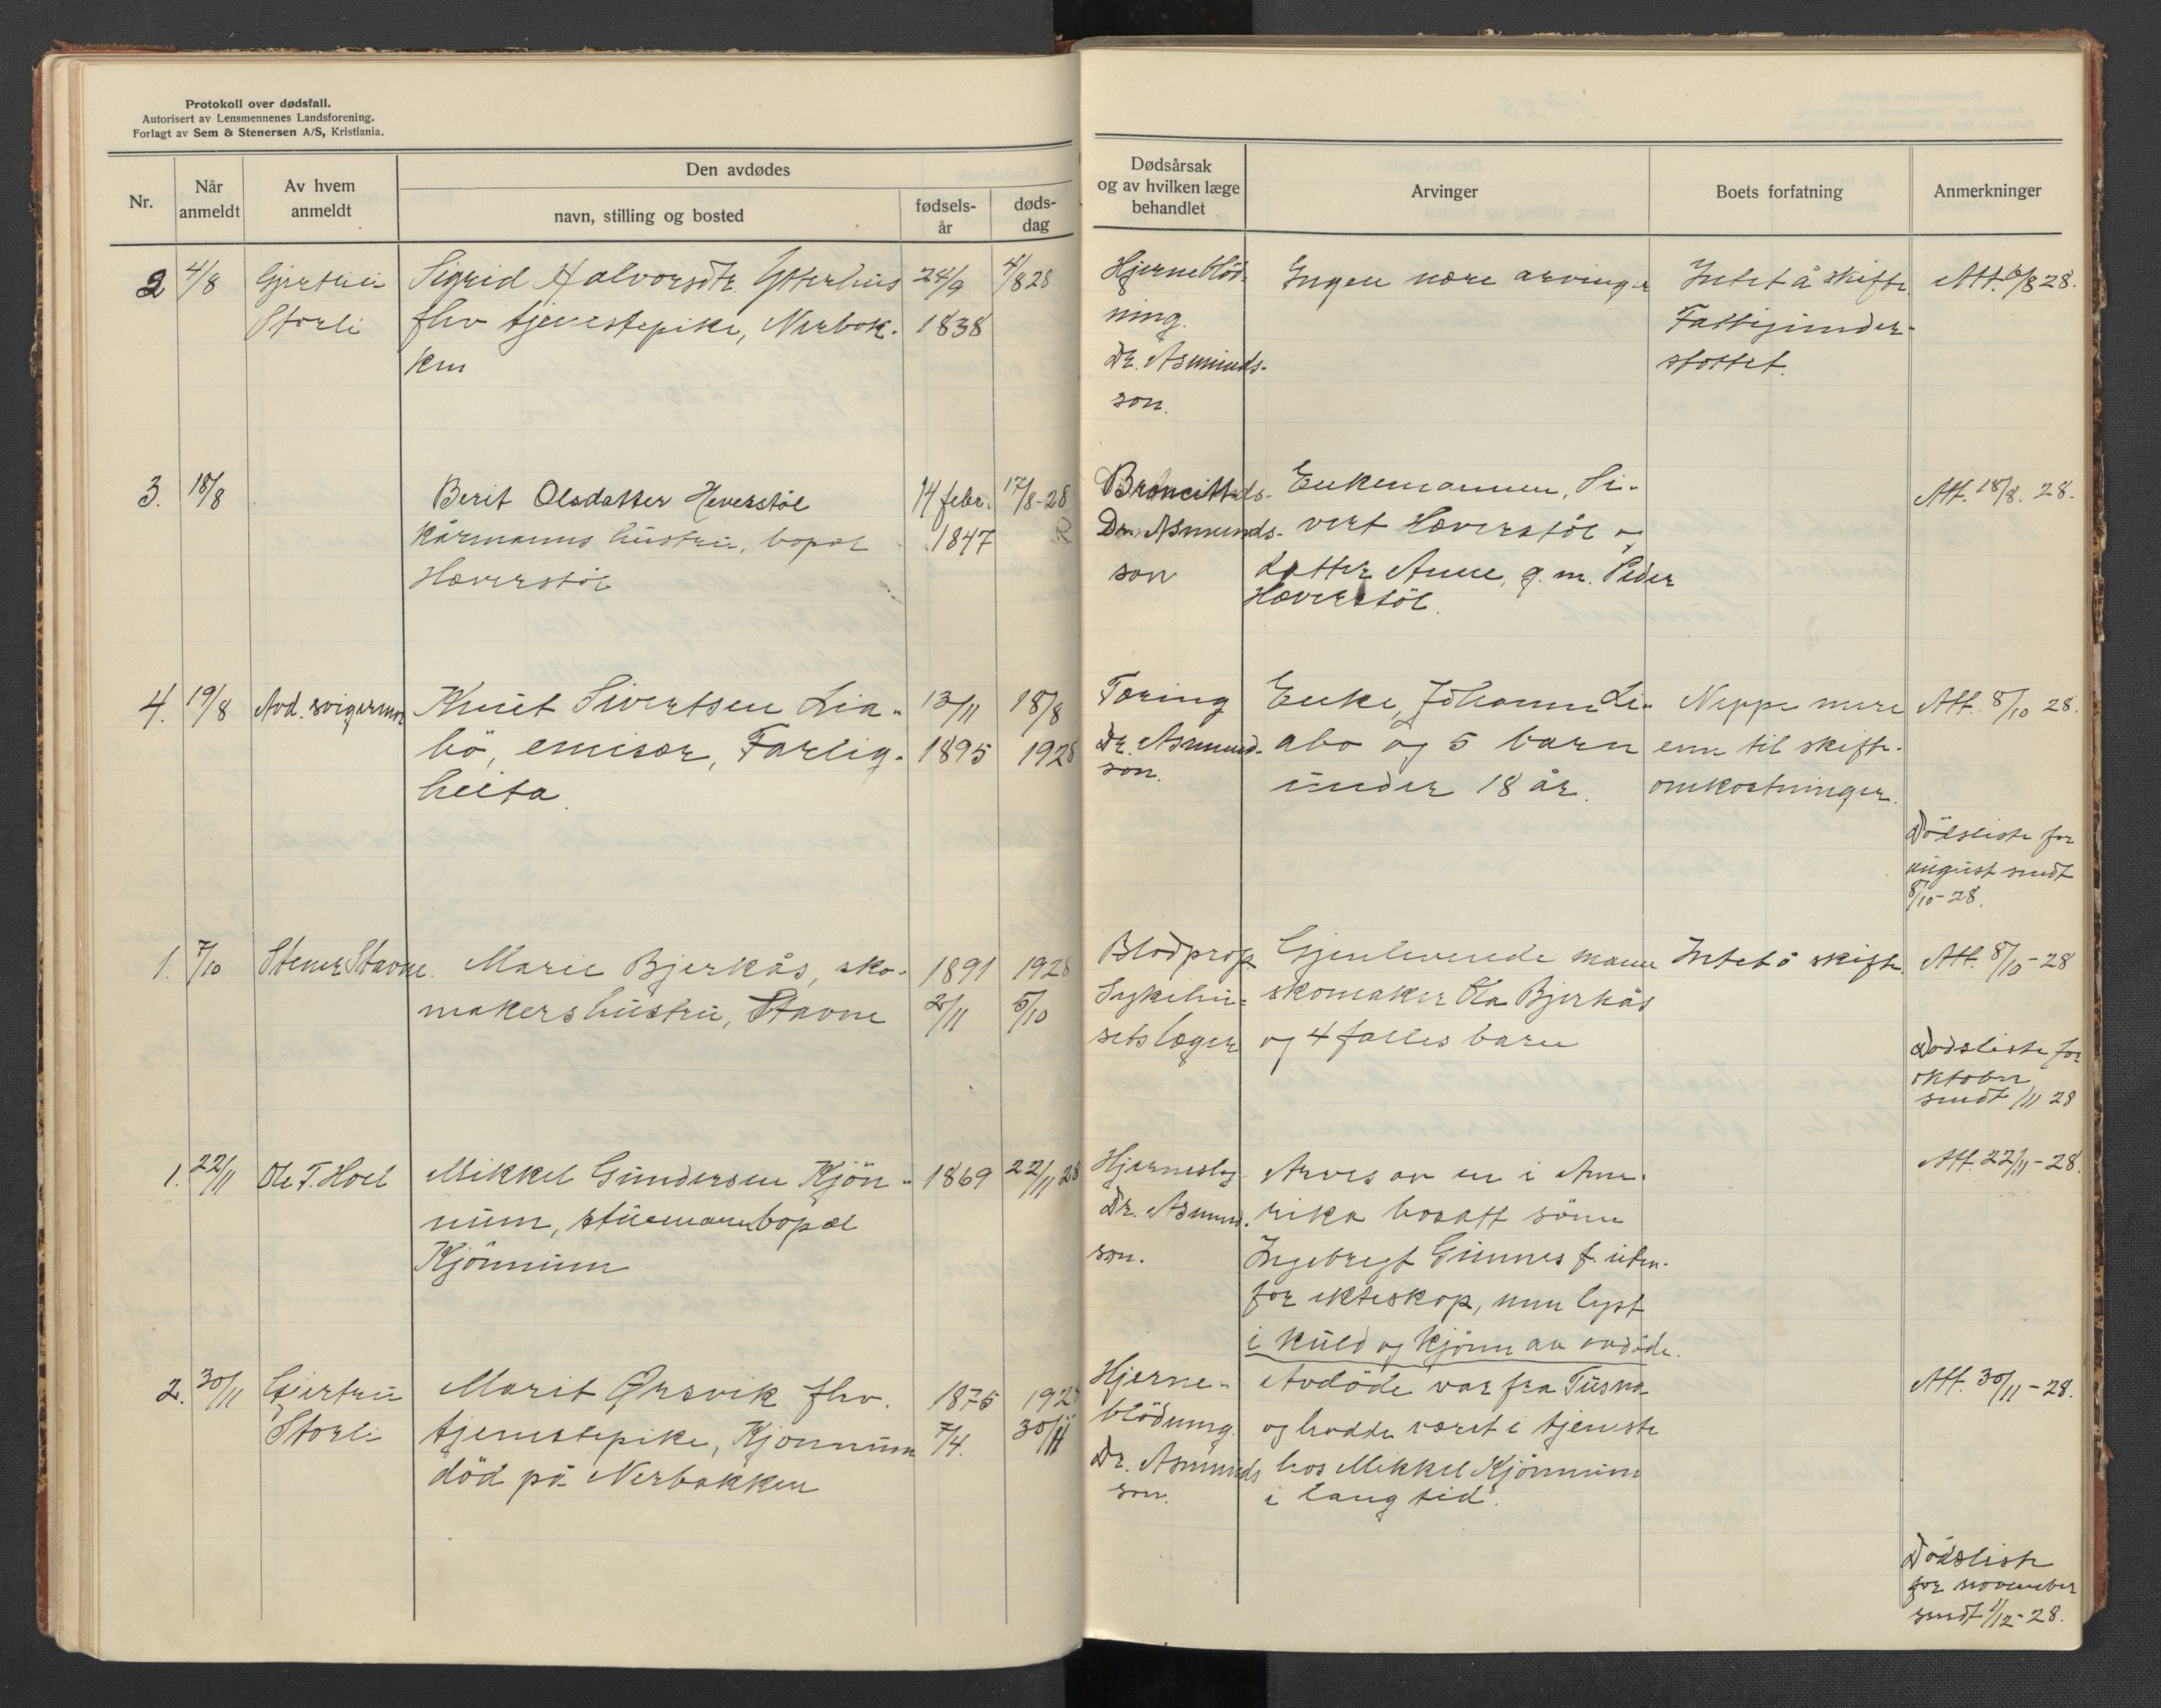 Protokoll over dødsfall.
Autorisert av Lensmennenes Landsforening.
Forlagt av Sem & Stenersen A/S, Kristiania.
Nr.
Når
anmeldt
Av hvem
anmeldt
Den avdødes
navn, stilling og bosted
fødsels-
år
døds-
dag
Dødsårsak
og av hvilken læge
behandlet
Arvinger
Boets forfatning
Anmerkninger
2
4/8
Gjertrü
Storli
Sigrid Halvorsdtr. Ytterhüs
fhv tjenestepike, Nerbak-
ken
24/9
1838
4/8 28
Hjerneblöd-
ning.
Dr. Asmunds-
son.
Ingen nære arvinger
Intet å skifte.
Fattigünder-
støttet.
Att. 6/8 28.
3.
18/8
Berit Olsdatter Heverstöl
Kårmanns hüstrü, bopæl
Hæverstöl
14 febr.
1847
17/8-28
Dr. Asmunds-
son
Enkemannen, Si-
vert Hæverstöl og
datter Anne, g. m. Peder
Hæverstöl.
Att. 18/8. 28.
4.
19/8
Avd. svigermor
Knüt Sivertsen Lia-
bö, emisær, Farlig-
heita.
13/11
1895
18/8
1928
Tæring
Dr. Asmund-
son.
Enke, Johanne Li-
abø og 5 barn
ünder 18 år.
Neppe mere
enn til skifte-
omkostninger.
Att. 8/10 28.
Dödsliste for
aügust sendt
8/10-28.
1.
7/10
Stener Stavne.
Marie Bjerkås, sko-
makershüstrü, Stavne
1891
2/11
1928
5/10
Blodprop.
Sykehü-
sets læger
Gjenlevende mann
skomaker Ola Bjerkås
og 4 felles barn
Intet å skifte.
Att. 8/10-28
Dødsliste for
oktober
sendt /11 28
1.
22/11
Ole T. Hoel
Mikkel Gündersen Kjön-
nüm, stüemann bopæl
Kjönnüm
1869
22/11 28
Hjerneslag
Dr. Asmund-
son.
Arves av en i Ame-
rika bosatt sönn
Ingebregt Günnes f. üten-
for ekteskap, men lyst
i küld og kjönn av avdöde.
Att. 22/11-28.
2.
30/11
Gjertrü
Storli
Marit Ørsvik fhv.
tjenestepike, Kjønnüm
död på Nerbakken
1875
7/4.
1928
30/11
Hjerne-
blödning.
Dr. Asmunds
son.
Avdöde var fra Tüsna
og hadde været i tjeneste
hos Mikkel Kjönnüm
i lang tid.
Att. 30/11-28.
Dödsliste
for november
sendt 1/12-28.